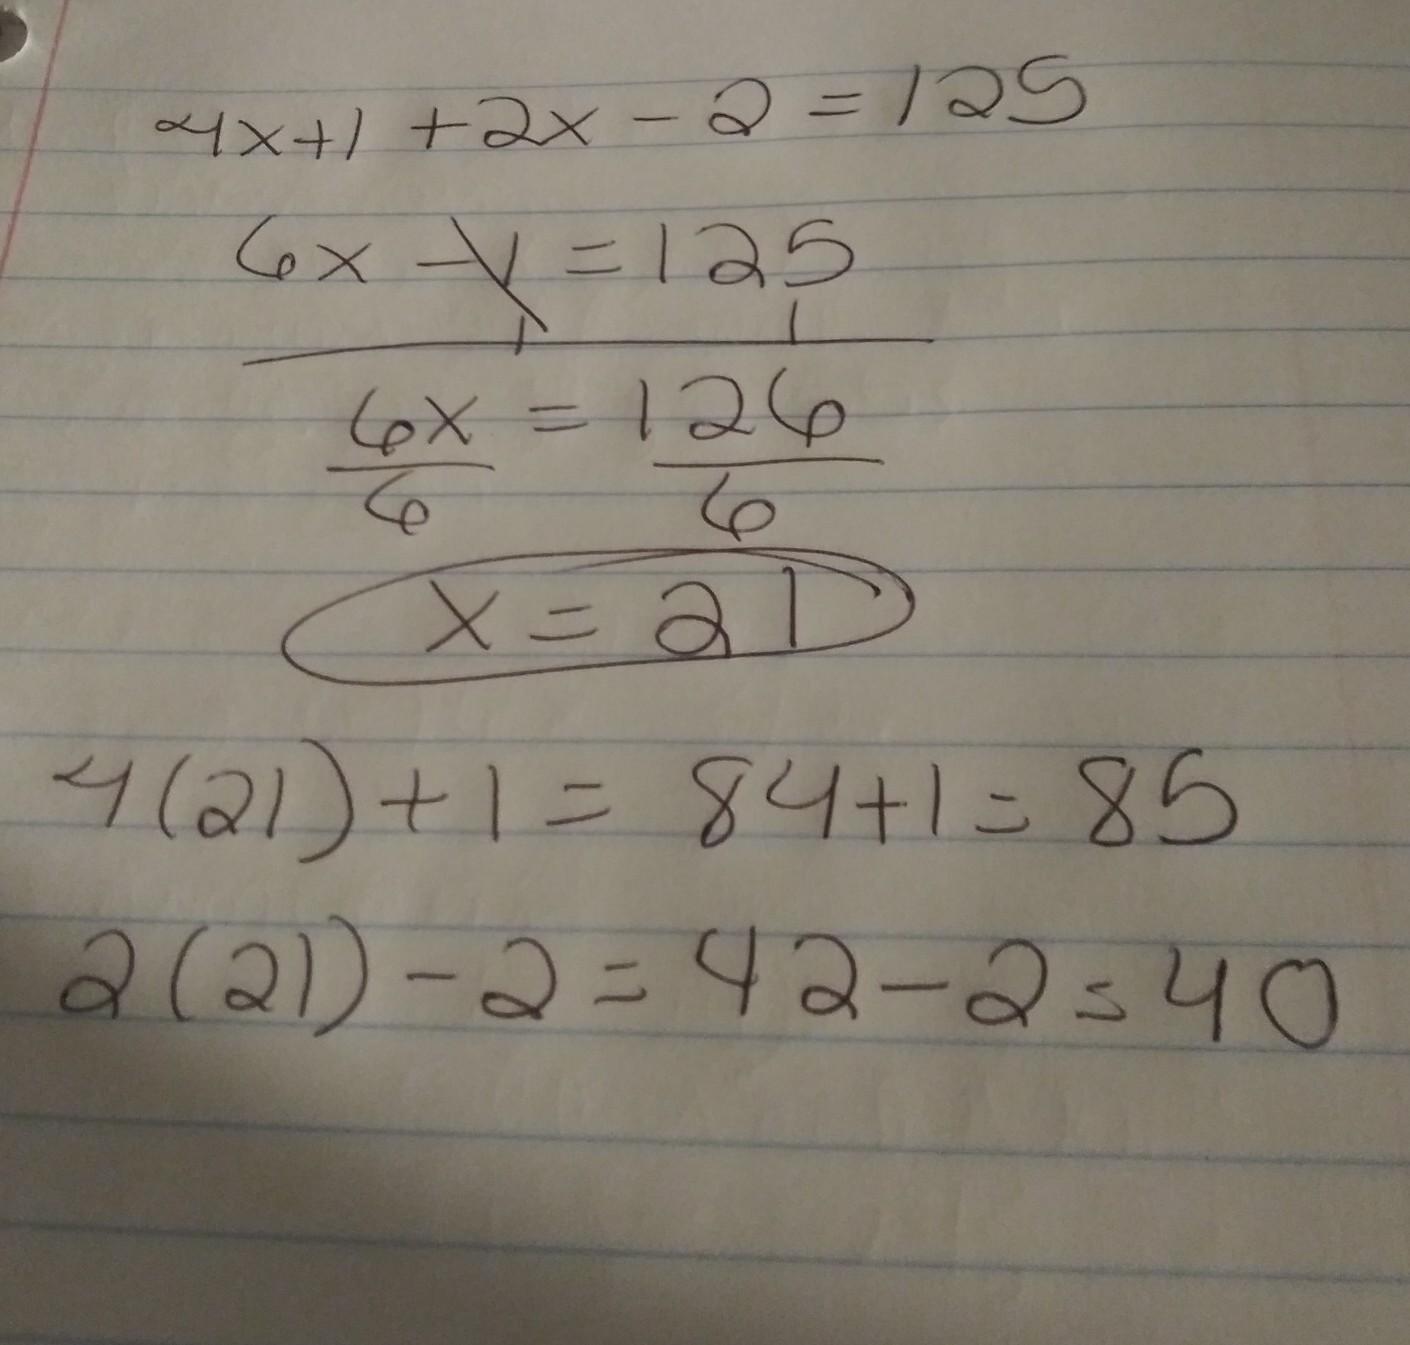 4x+1 +2x - 2 = 125
6x - 1 = 125
1 1
6x = 126
6 6
x = 21
4(21)+1 = 84+1 = 85
2(21) - 2 = 42 - 2 = 40